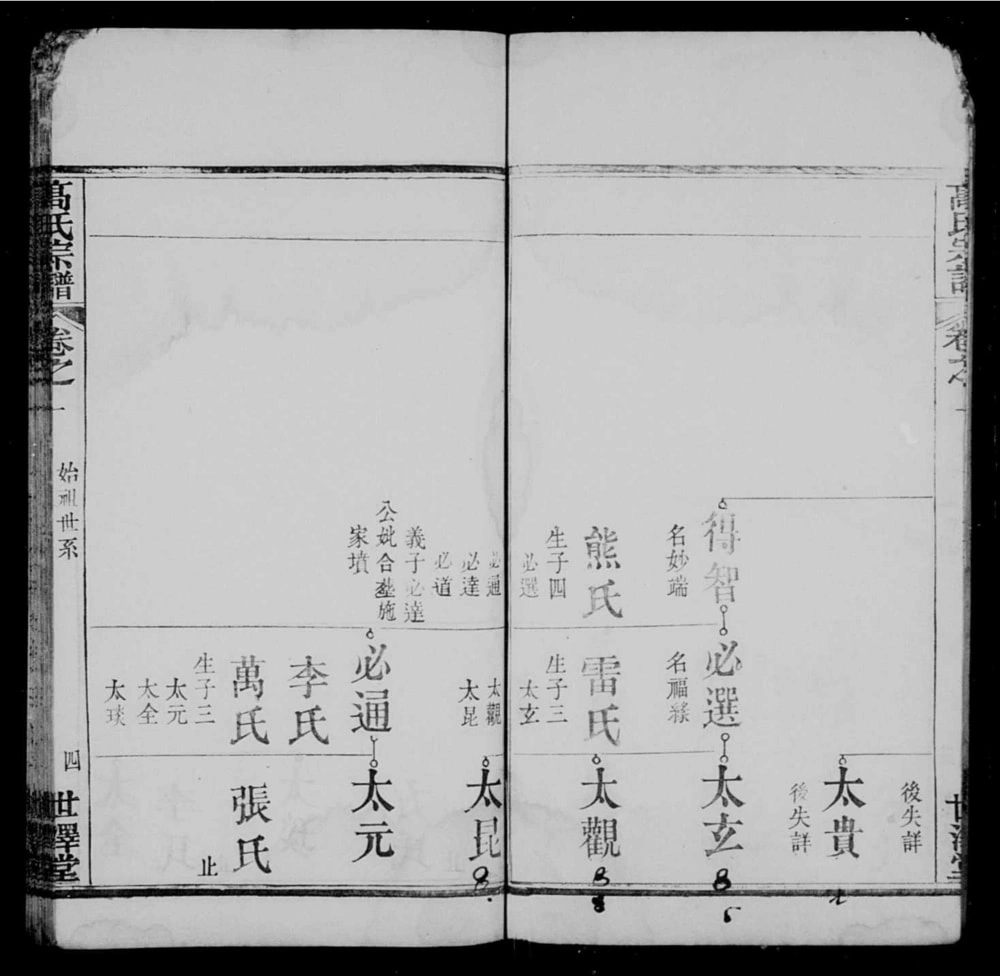 高氏宗譜
卷之一
後失詳
太貴
後失詳
得智
名妙瑞
熊氏
生子四
必選
必通
必達
必道
義子必達
公妣合塟施
家墳
必選
名福緣
雷氏
生子三
太玄
太觀
太昆
必通
李氏
萬氏
生子三
太元
太全
太琰
太玄
太觀
太昆
太元
張氏
止
世澤堂
高氏宗譜
卷之一
始祖世系
四
世澤堂